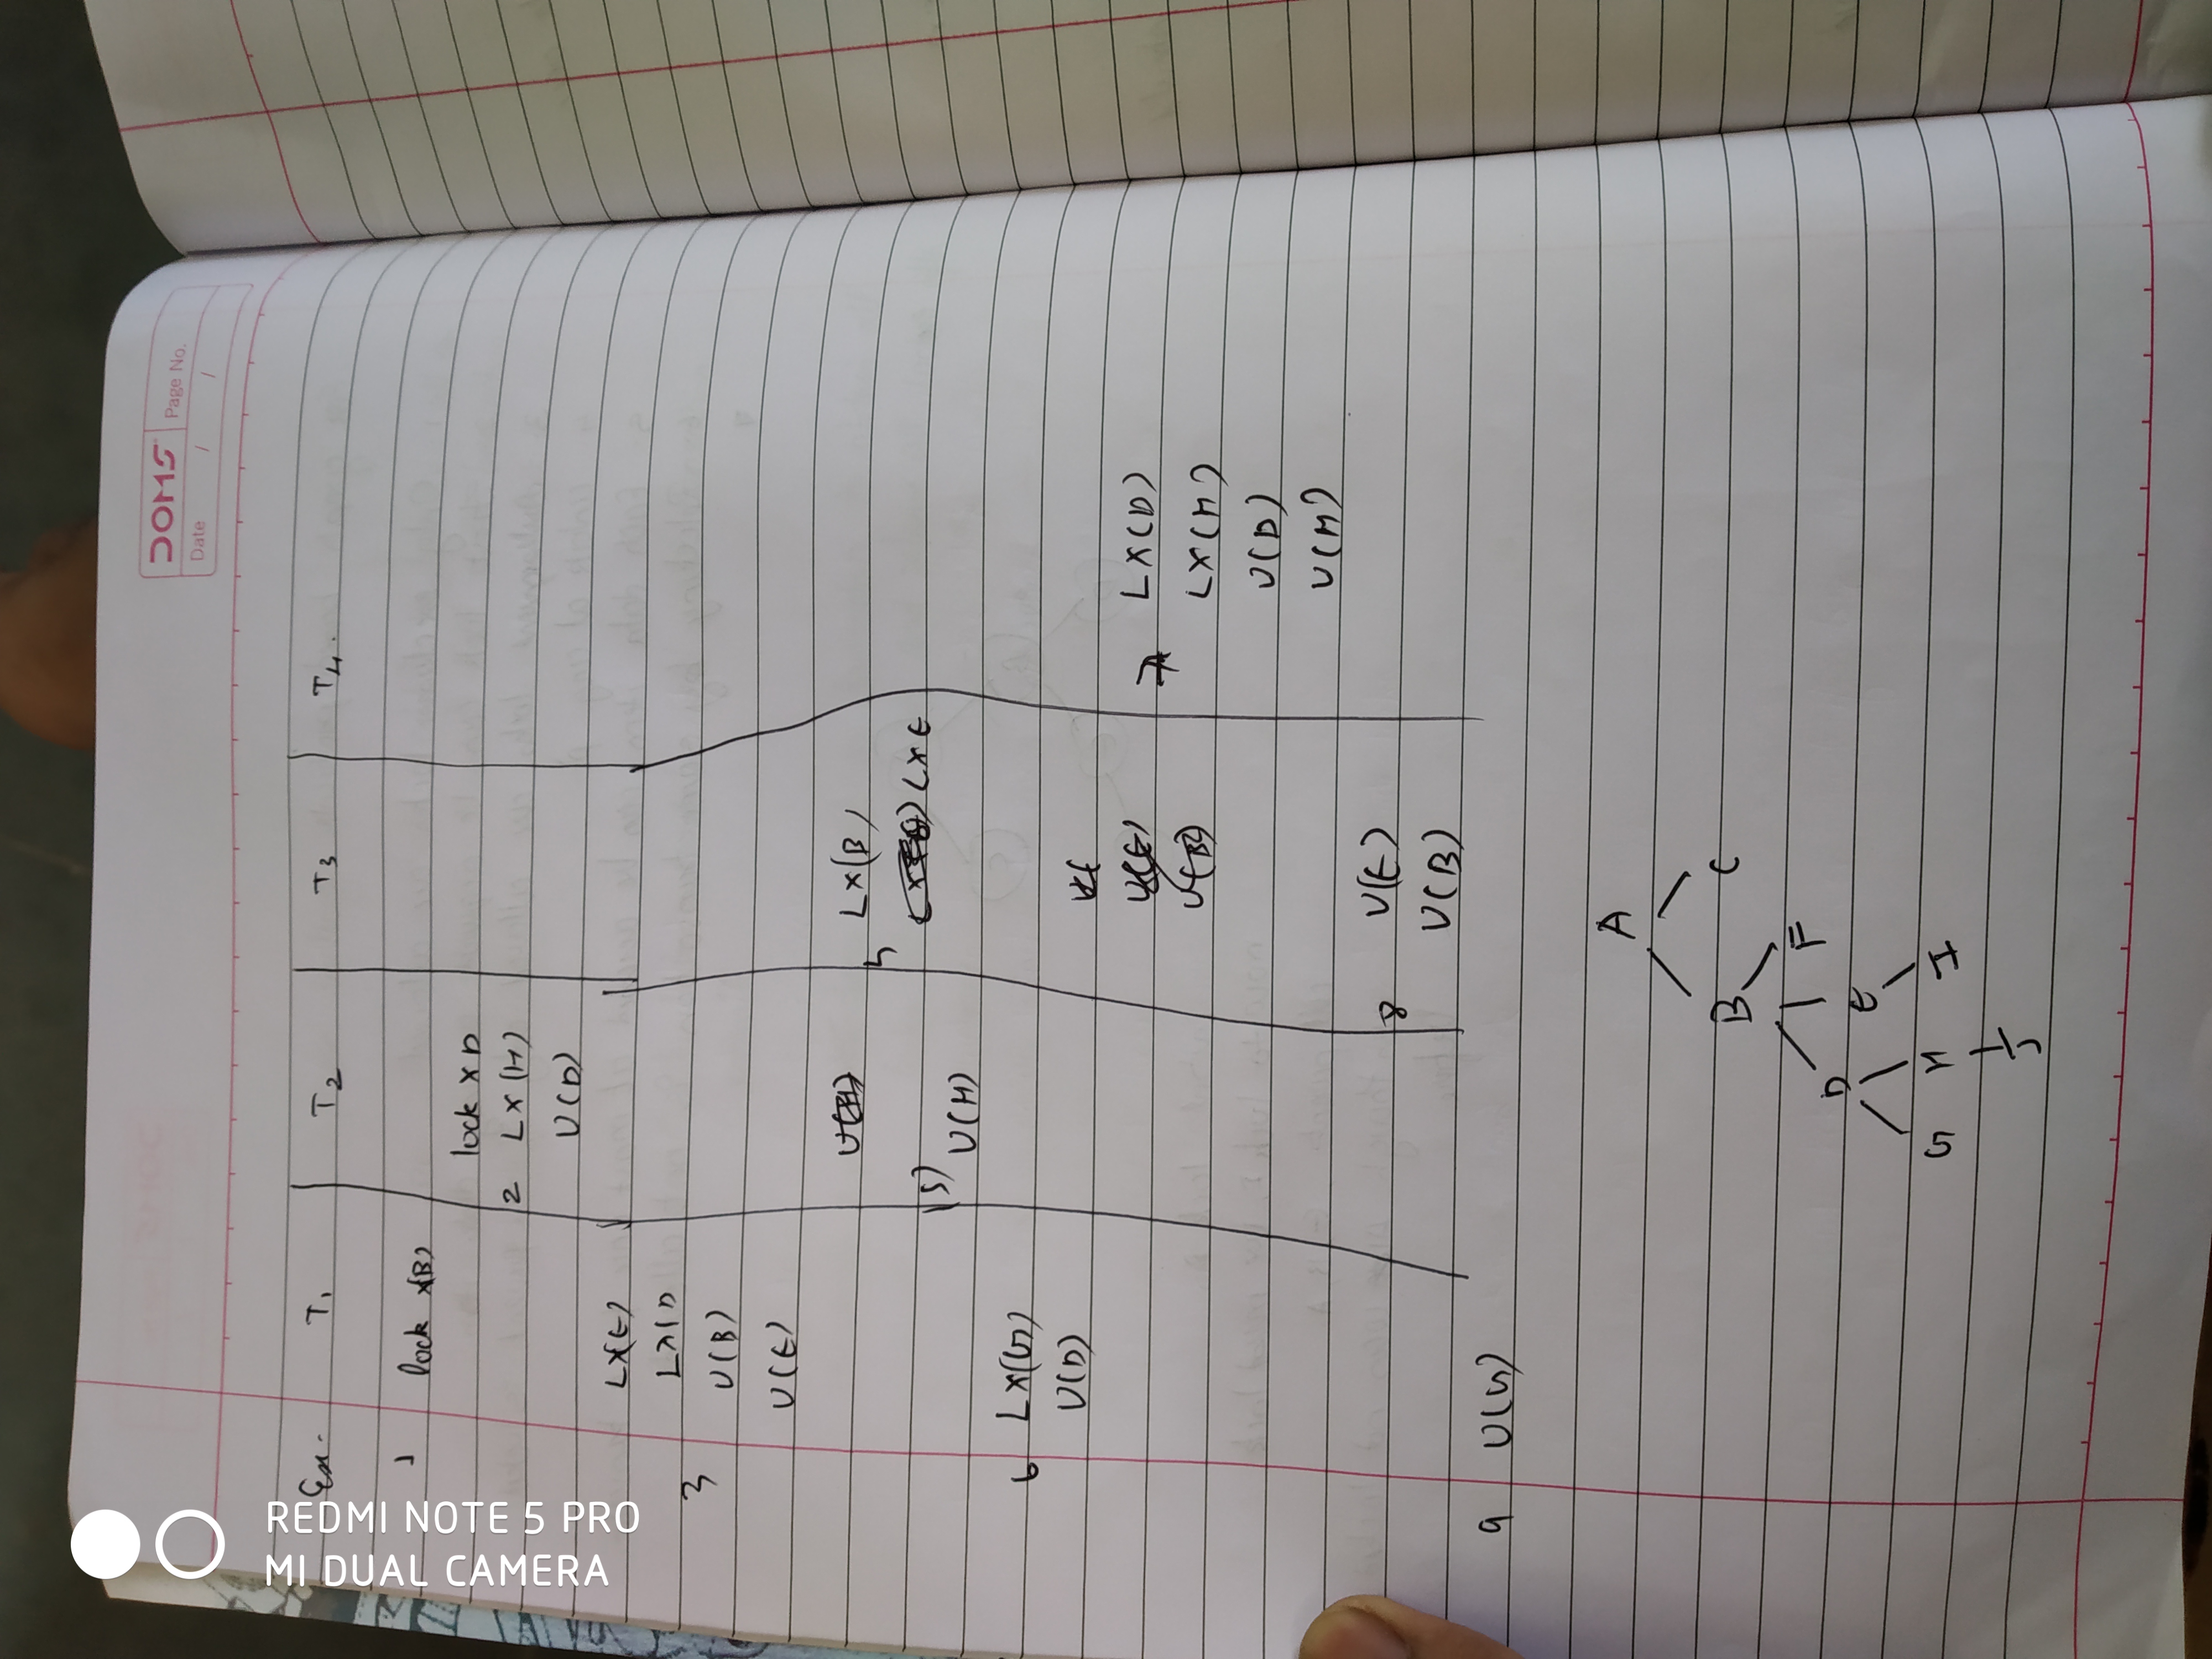 DOMS
Page No.
Date / /
Ex. T1 T2 T3 T4.
1 lock X(B)
lock X D
2 LX(H)
U(D)
LX(E)
3 LX(D
U(B)
U(E)
U(H) 4 LX(B)
LX E
5) U(H)
6 LX(G)
U(D)
7 LX(D)
U(E) LX(H)
U(B) U(D)
U(H)
8 U(E)
U(B)
9 U(G)
A
B C
F
D E
G H I
J
REDMI NOTE 5 PRO
MI DUAL CAMERA